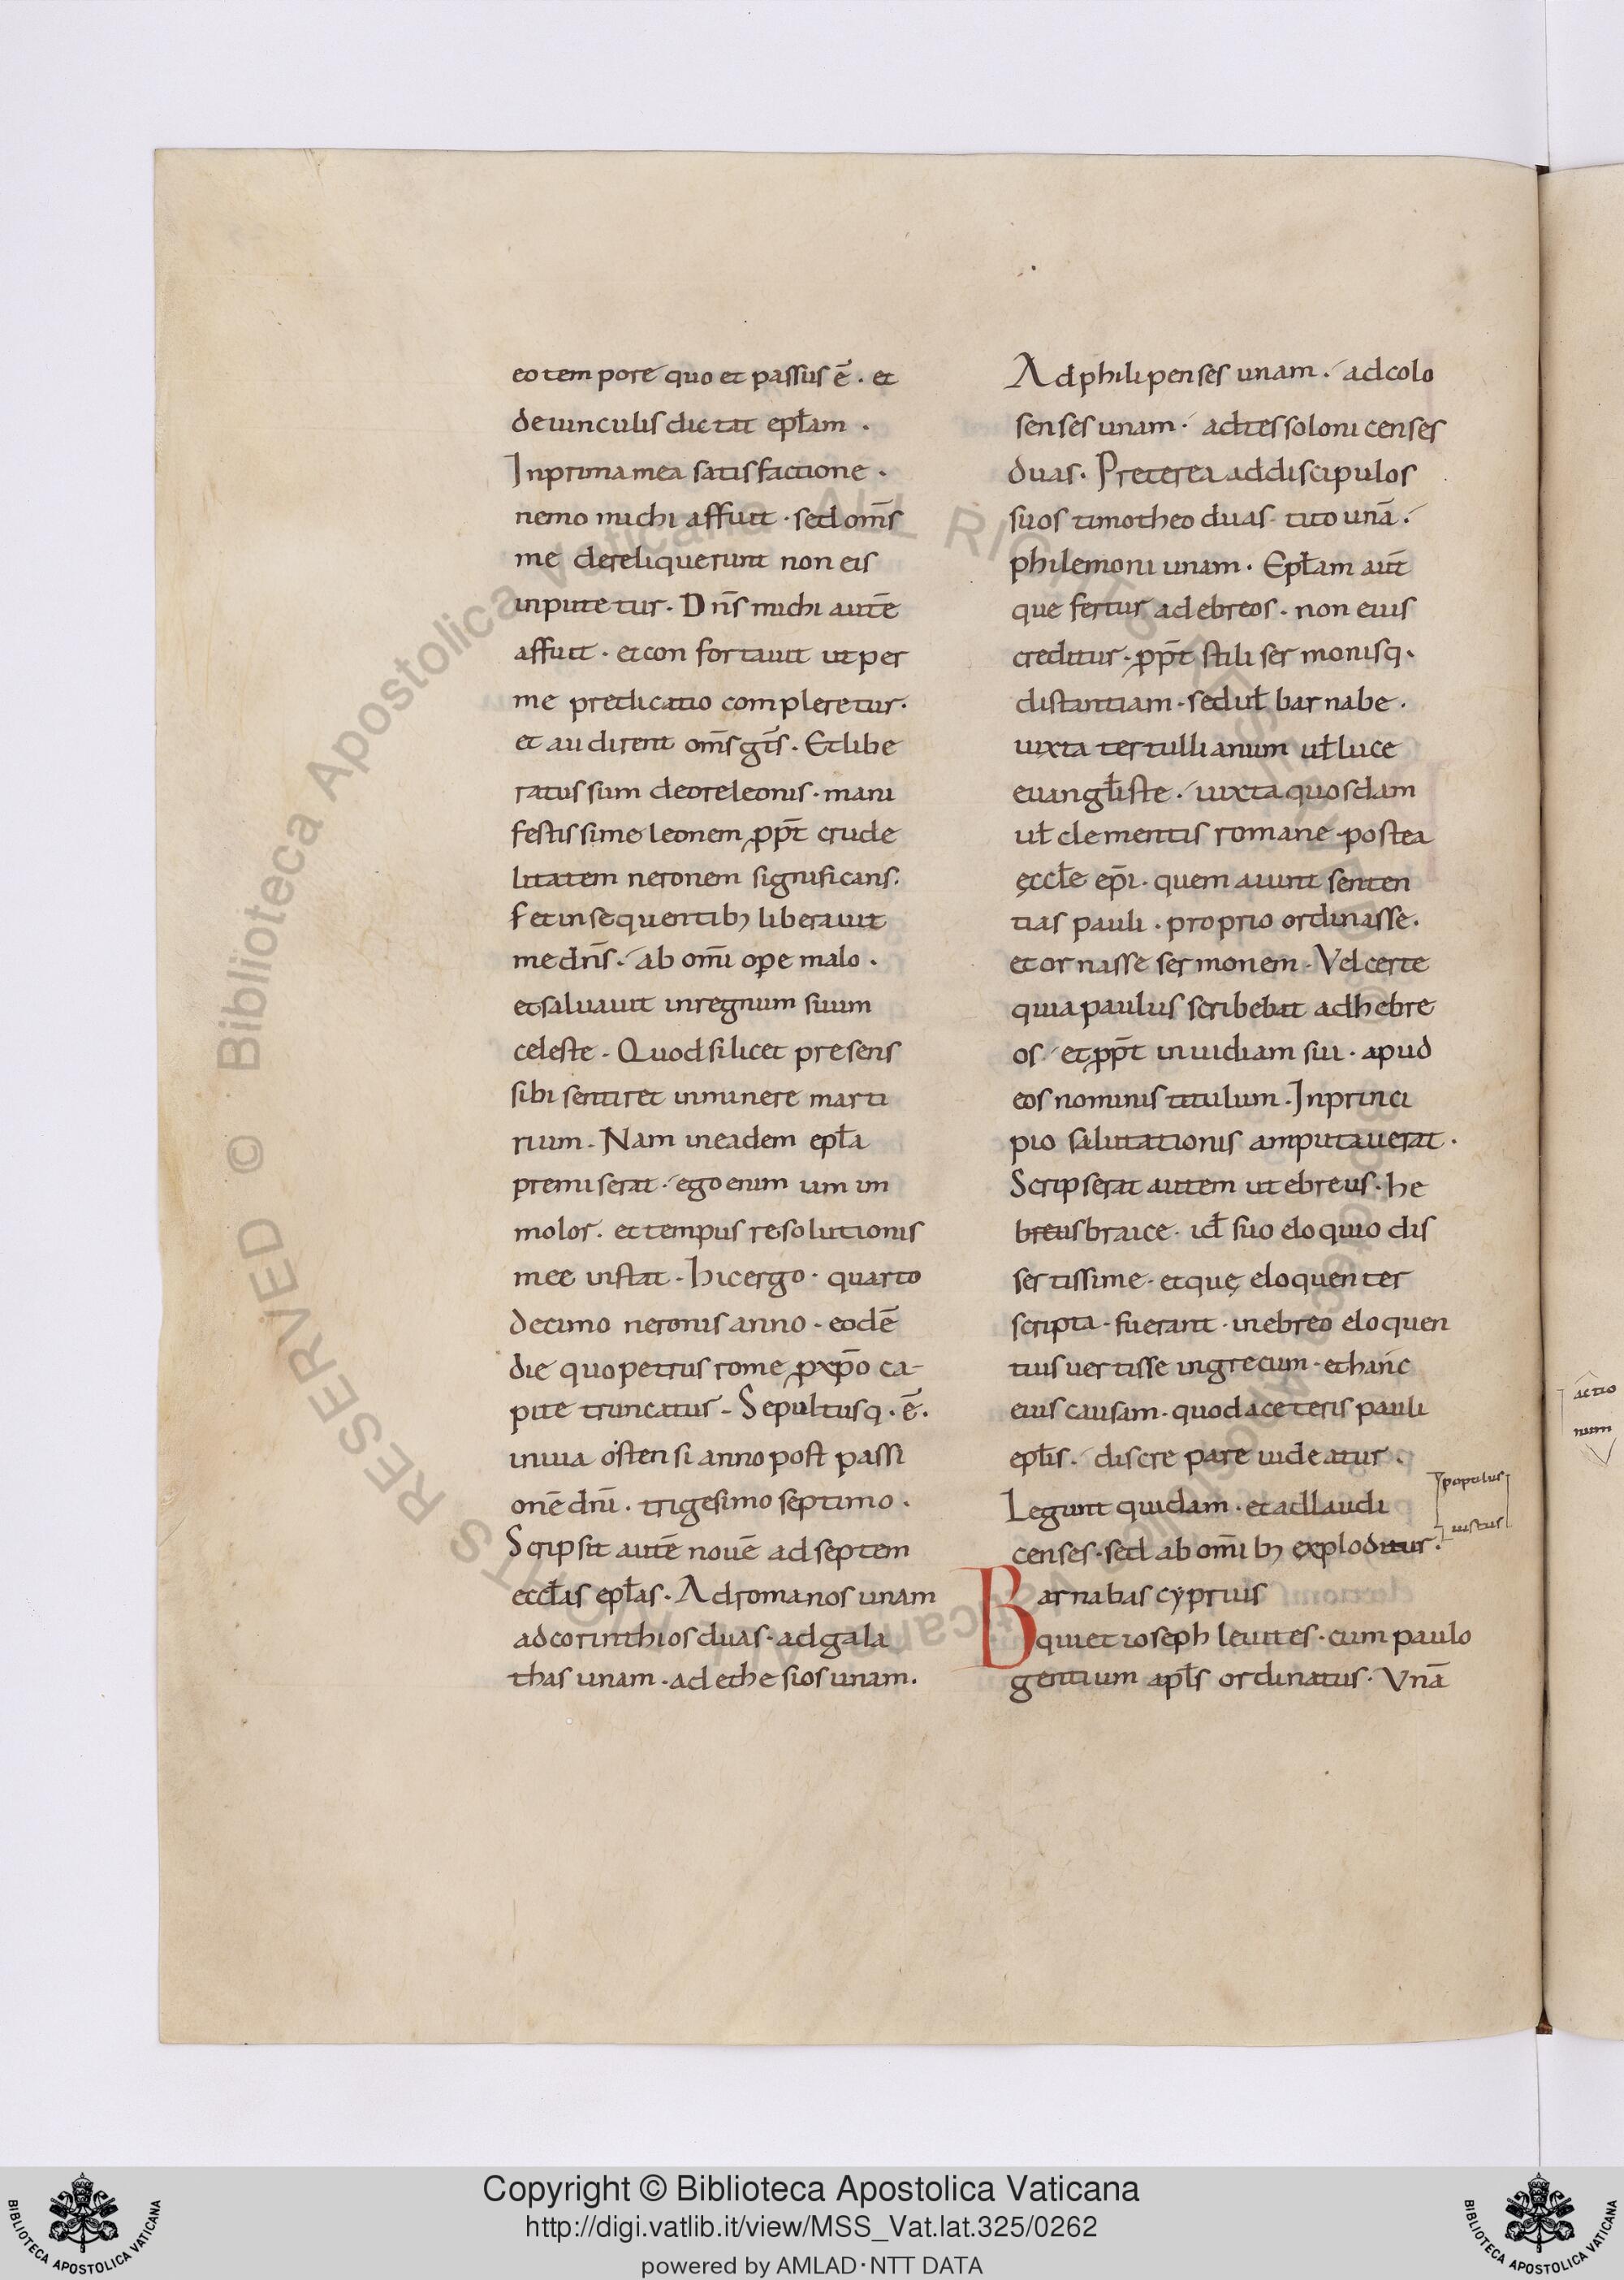 eo tempore quo et passus ē. et
de uinculis dictat epłam.
In prima mea satisfactione.
nemo michi affuit. sed om̅s
me dereliquerunt non eis
inputetur. Dn̅s michi autē
affuit. et confortauit ut per
me predicatio compleretur.
et audirent om̅s gt̅s. Et libe
ratus sum de ore leonis. mani
festissime leonem ꝓpt̅ crude
litatem neronem significans.
Et in sequentibꝫ liberauit
me dn̅s. ab om̅i ope malo.
et saluauit in regnum suum
celeste. Quod silicet presens
sibi sentiret inminere marti
rium. Nam in eadem epła
premiserat. ego enim iam im
molor. et tempus resolutionis
mee instat. hic ergo. quarto
decimo neronis anno. eodē
die quo petrus rome ꝓ xp̅o ca-
pite truncatur. Sepultusq. ē.
in uia ostensi anno post passi
onē dn̅i. trigesimo septimo.
Scripsit autē nouē ad septem
eccłis epłas. Ad romanos unam
ad corinthios duas. ad gala
thas unam. ad ethesios unam.
Ad philipenses unam. ad colo
senses unam. ad tessolonicenses
duas. Preterea ad discipulos
suos timotheo duas. tito unā.
philemoni unam. Epłam aut̅
que fertur ad ebreos. non eius
creditur. ꝓpt̅ stili sermonisq.
distantiam. sed uł barnabe.
iuxta tertullianum uł luce
euangłiste. iuxta quosdam
uł clementis romane postea
ęccłe ep̅i. quem aiunt senten
tias pauli. proprio ordinasse.
et ornasse sermonem. Vel certe
quia paulus scribebat ad hebre
os. et ꝓpt̅ inuidiam sui. apud
eos nominis titulum. In princi
pio salutationis amputauerat.
Scripserat autem ut ebreus. he
breus braice. id̅ suo eloquio dis
sertissime. et quę eloquenter
scripta. fuerant. in ebreo eloquen
tius uertisse in grecum. et hanc
eius causam. quod a ceteris pauli
epłis. discrepare uideatur.
Legunt quidam. et ad laudi
censes. sed ab om̅ibꝫ exploditur.
Barnabas cyprius
qui et ioseph leuites. cum paulo
gentium apłs ordinatus. Vnā
populus
iustus
actio
num
© Biblioteca Apostolica Vaticana ALL RIGHTS RESERVED
Copyright © Biblioteca Apostolica Vaticana
http://digi.vatlib.it/view/MSS_Vat.lat.325/0262
powered by AMLAD·NTT DATA
BIBLIOTECA APOSTOLICA VATICANA
BIBLIOTECA APOSTOLICA VATICANA